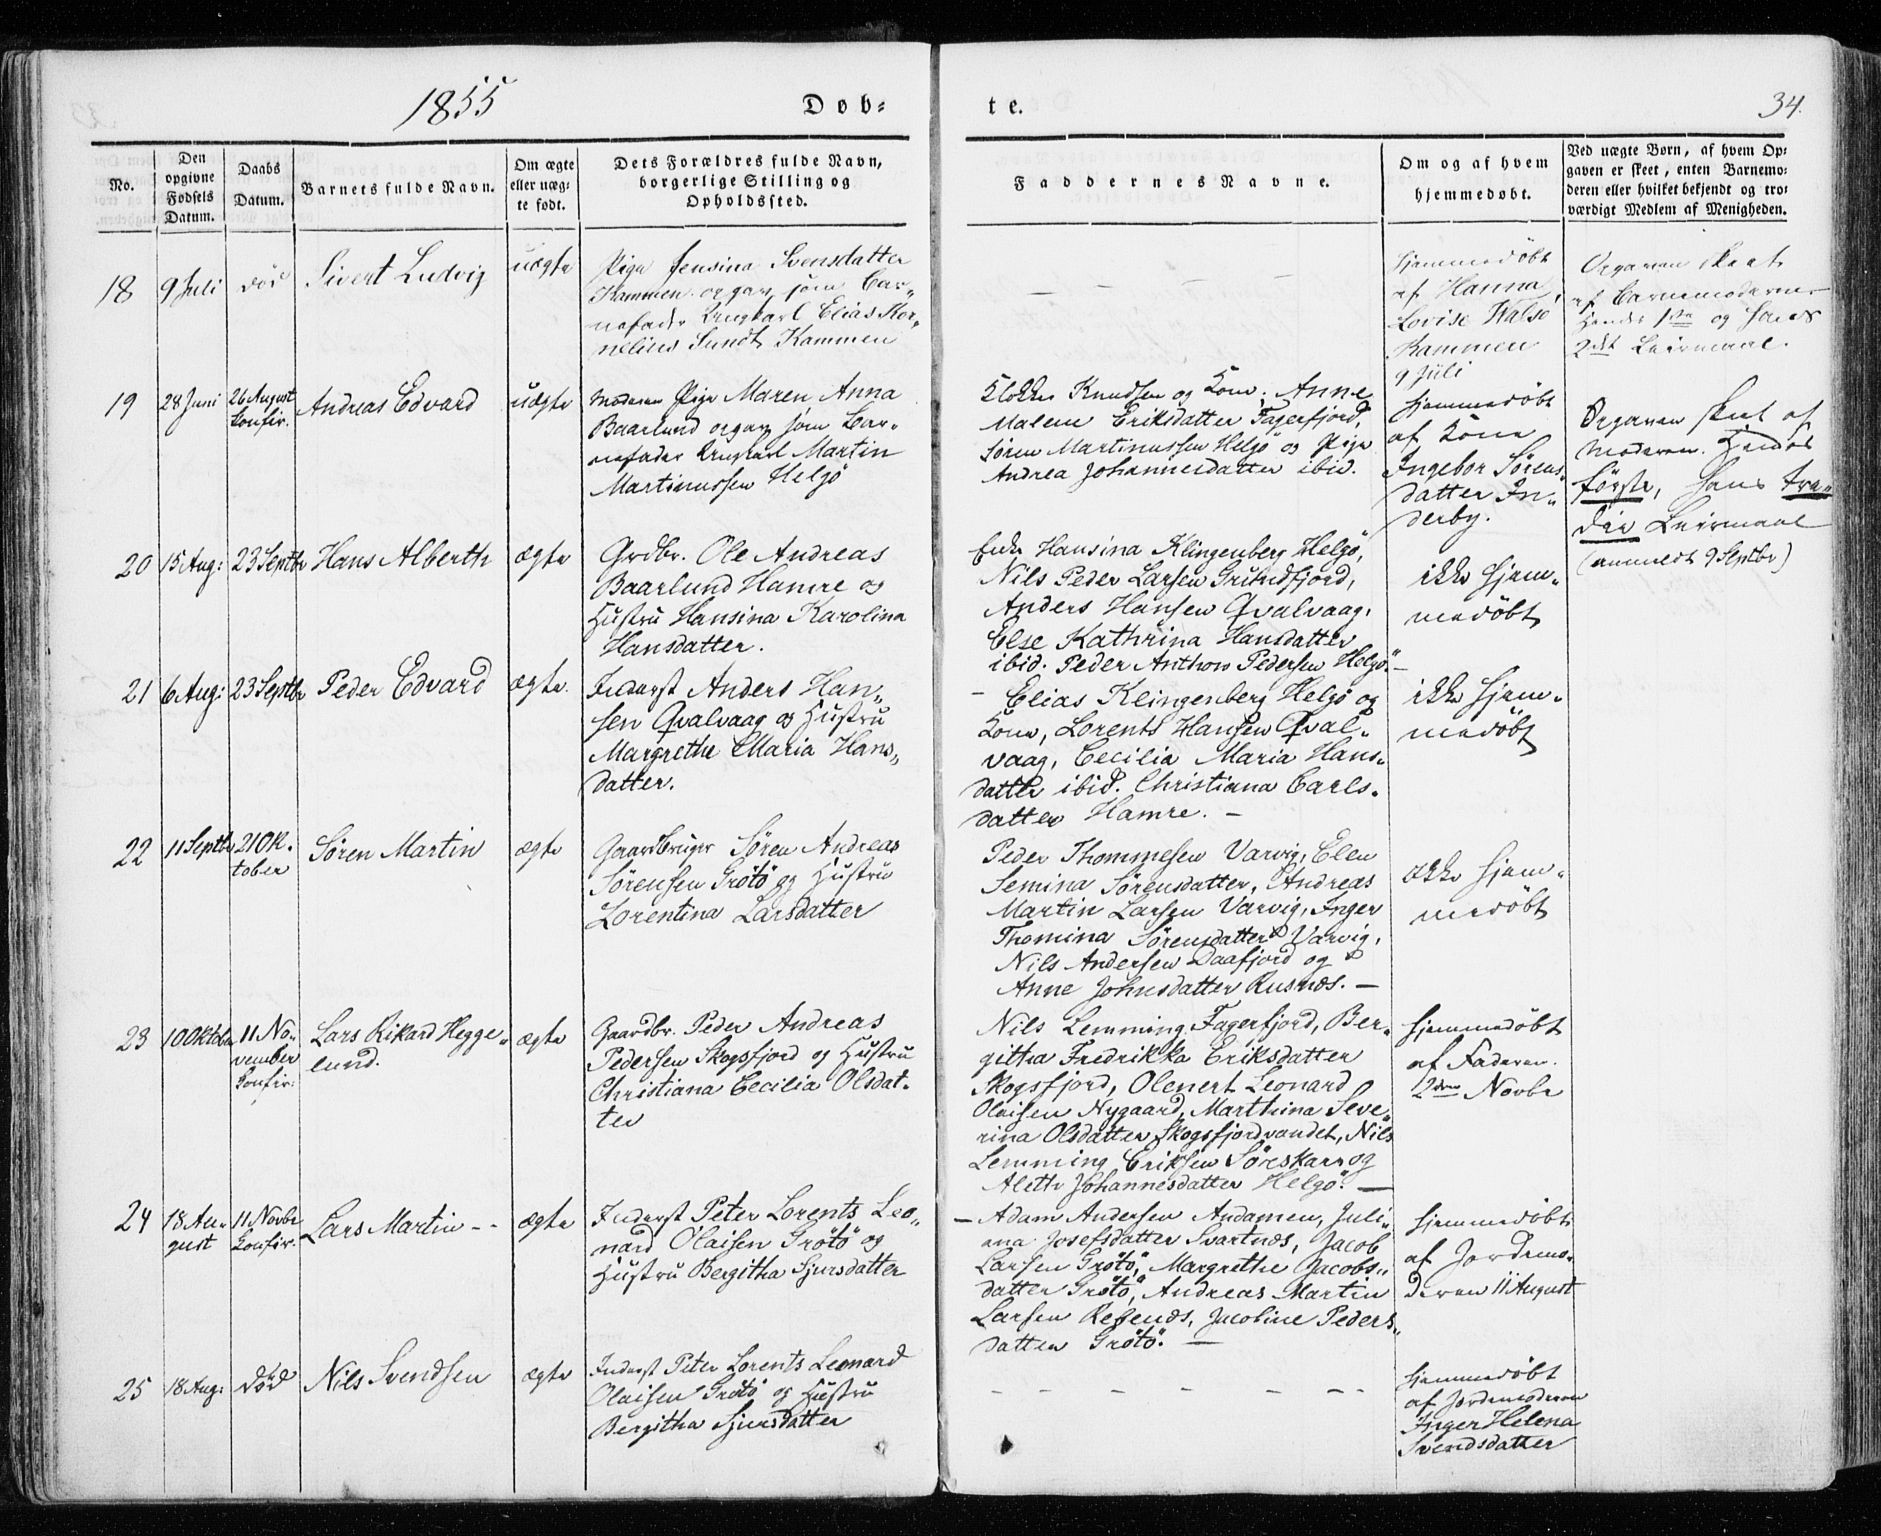 1855
Døb-
te.
34.
No.
Den opgivne Fødsels Datum.
Daabs Datum.
Barnets fulde Navn.
Om ægte eller uæg- te født.
Dets Forældres fulde Navn, borgerlige Stilling og Opholdssted.
Faddernes Navne.
Om og af hvem hjemmedøbt.
Ved uægte Børn, af hvem Op- gaven er skeet, enten Barnemo- deren eller hvilket bekjendt og tro- værdigt Medlem af Menigheden.
18
9 Juli
død
Sivert Ludvig
uægte
Pige Jensina Svensdatter
Kammen. opgav som Bar-
nefader Ungkarl Elias Kor-
nelius Sundt Kammen
- - - - -
Hjemmedøbt
af Hanna
Lovise Walsø
Kammen
9 Juli
Opgaven skeet
af Barnemoderen
Hendes 1ste og hans
2det Leiermaal.
19
28 Juni
26 August
Konfir.
Andreas Edvard
uægte
Moderen Pige Maren Anna
Baarlund opgav som Bar-
nefader Ungkarl Martin
Martinussen Helgö
Klokker Knudsen og Kone. Anne
Malene Eriksdatter Fagerfjord,
Sören Martinussen Helgö og Pige
Andrea Johannesdatter ibid.
Hjemmedöbt
af Kone
Ingebor Sörens-
datter In-
derby.
Opgaven skeet af
Moderen. Hendes
förste, hans tre-
die Leiermaal
(anmeldt 9 Septbr)
20
15 Aug:
23 Septbr
Hans Alberth
ægte
Grdbr. Ole Andreas
Baarlund Hamre og
Hustru Hansina Karolina
Hansdatter.
Enke Hansina Klingenberg Helgö,
Nils Peder Larsen Grundfjord,
Anders Hansen Qvalvaag,
Else Kathrina Hansdatter
ibid. Peder Anthon Pedersen Helgö. -
ikke hjem-
medöbt
21
6 Aug:
23 Septbr
Peder Edvard
ægte.
Inderst Anders Han-
sen Qvalvaag og Hustru
Margrethe Maria Hans-
datter.
- Elias Klingenberg Helgö og
Kone, Lorents Hansen Qval-
vaag, Cecilia Maria Hans-
datter ibid. Christiana Carls-
datter Hamre. -
ikke hjem-
medöbt
22
11 Septbr
21 Ok-
tober
Sören Martin
ægte
Gaardbruger Sören Andreas
Sörensen Grötö og Hustru
Lorentina Larsdatter
Peder Thommesen Varvig, Elen
Semina Sörensdatter, Andreas
Martin Larsen Varvig, Inger
Thomina Sörensdatter Varvig,
Nils Andersen Daafjord og
Anne Johnsdatter Rusnæs. -
ikke hjem-
medöbt
23
10 Oktober
11 No-
vember
Konfir:
Lars Rikard Hegge-
lund.
ægte
Gaardbr. Peder Andreas
Pedersen Skogsfjord og Hustru
Christiana Cecilia Olsdat-
ter
Nils Lemming Fagerfjord, Ber-
githa Fredrikka Eriksdatter
Skogsfjord, Olenert Leonard
Olaisen Nygaard, Marthina Seve-
rina Olsdatter Skogsfjordvandet, Nils
Lemming Eriksen Söreskar og
Aleth Johannesdatter Helgö. -
Hjemmedöbt
af Faderen.
2den Novbr
24
18 Au-
gust
11 Novbr
Konfir.
Lars Martin - -
ægte
Inderst Peter Lorents Leo-
nard Olaisen Grötö og
Hustru Bergitha Sjursdatter
- Adam Andersen Andamen, Juli-
ana Josefsdatter Svartnæs, Jacob
Larsen Grötö, Margrethe Jacobs-
datter Grötö, Andreas Martin
Larsen Refsnæs, Jacobine Peders-
datter Grötö. -
Hjemmedöbt
af Jordemo-
deren 11 August
25
18 Aug:
död
Nils Svendsen
ægte
Inderst Peter Lorents Leonard
Olaisen Grötö og Hustru
Bergitha Sjursdatter
- - - - - - - -
Hjemmedöbt
af Jordemoderen
Inger Helena
Svendsdatter